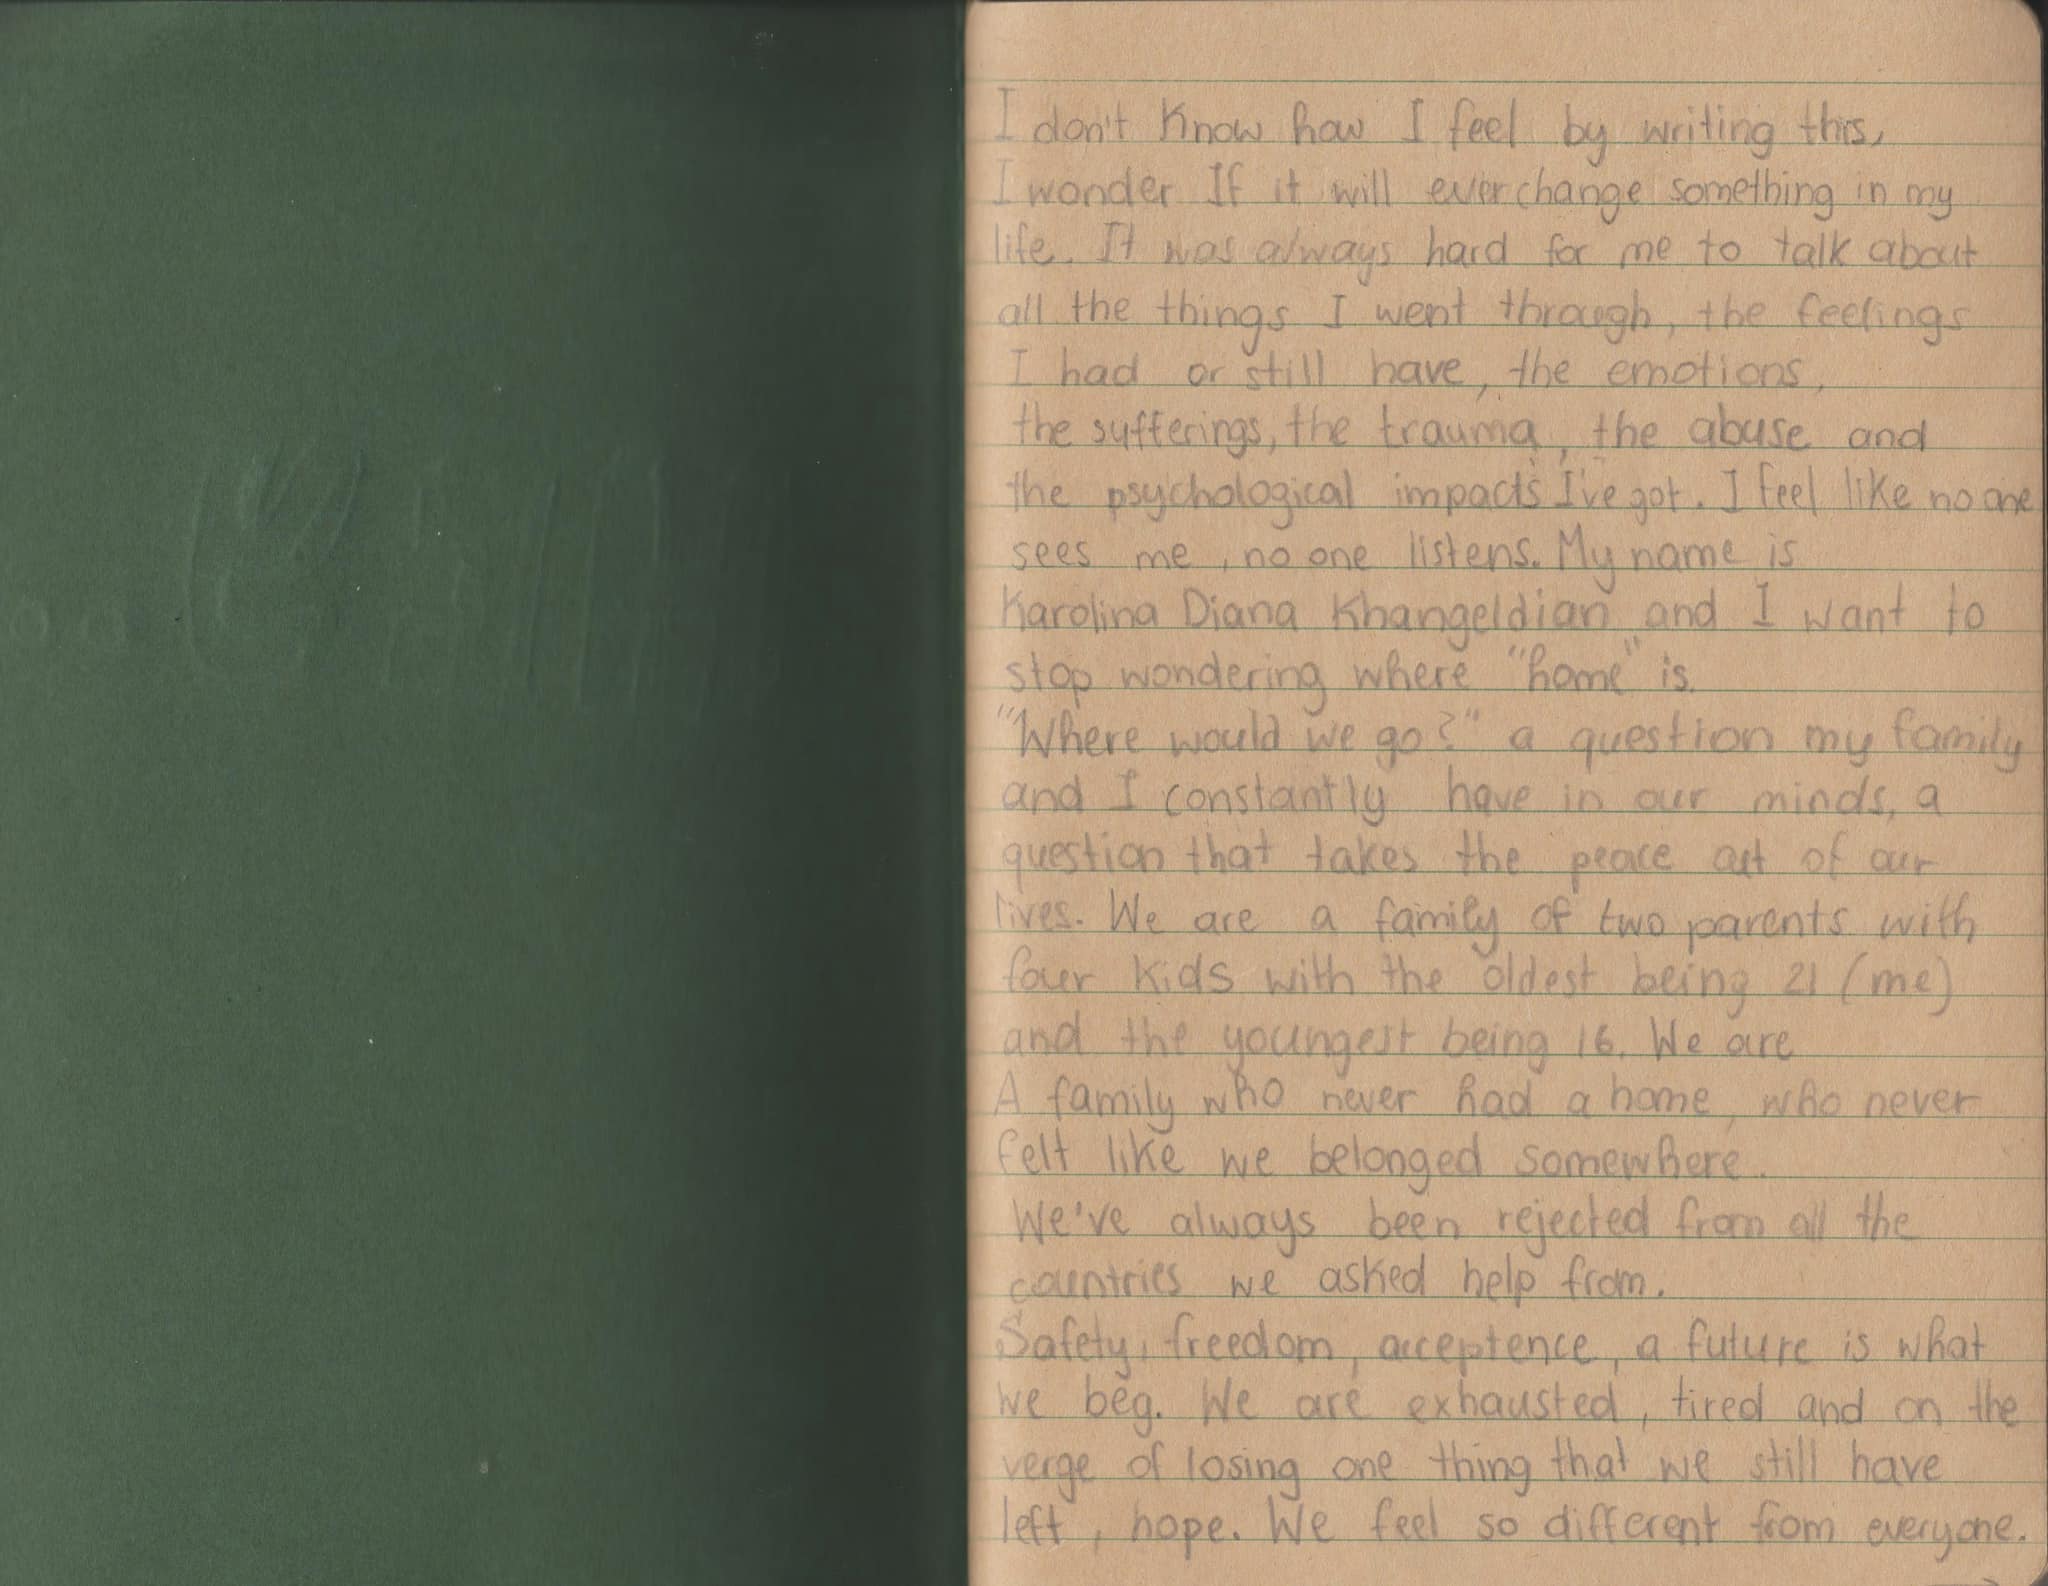 I don't Know how I feel by writing this,
I wonder If it will ever change something in my
life. It was always hard for me to talk about
all the things I went through, the feelings
I had or still have, the emotions,
the sufferings, the trauma, the abuse and
the psychological impacts I've got. I feel like no one
sees me, no one listens. My name is
Karolina Diana Khangeldian and I want to
stop wondering where "home" is.
"Where would we go?" a question my family
and I constantly have in our minds, a
question that takes the peace out of our
lives. We are a family of two parents with
four Kids with the oldest being 21 (me)
and the youngest being 16. We are
A family who never had a home, who never
felt like we belonged somewhere.
We've always been rejected from all the
countries we asked help from.
Safety, freedom, acceptence, a future is what
we beg. We are exhausted, tired and on the
verge of losing one thing that we still have
left, hope. We feel so different from everyone.